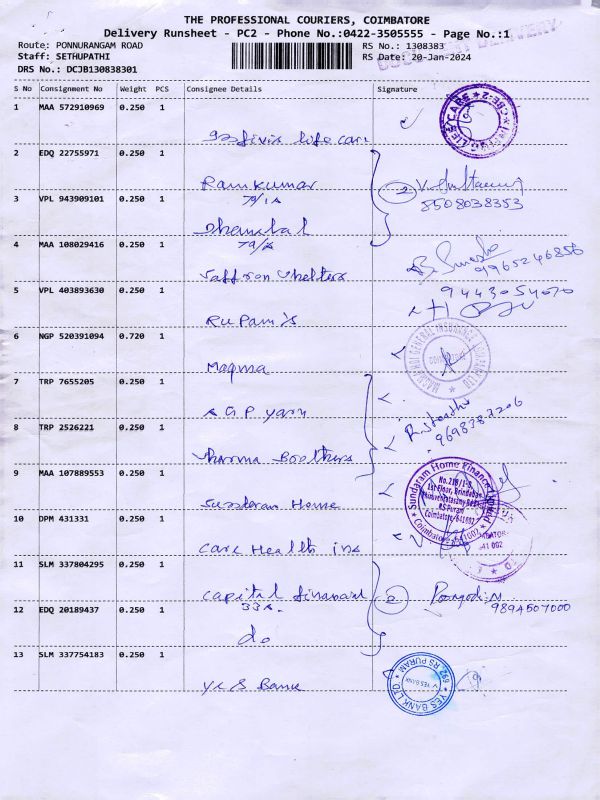 THE PROFESSIONAL COURIERS, COIMBATORE
Delivery Runsheet - PC2 - Phone No.:0422-3505555 - Page No.:1
Route: PONNURANGAM ROAD
RS No.: 1308383
Staff: SETHUPATHI
RS Date: 20-Jan-2024
DRS No.: DCJB130838301
S No Consignment No Weight PCS Consignee Details Signature
1 MAA 572910969 0.250 1
life care
2 EDQ 22755971 0.250 1
Ramkumar
79/1A
8508038353
3 VPL 943909101 0.250 1
Dhanabal
4 MAA 108029416 0.250 1
Saffron Shelters
9965246856
5 VPL 403893630 0.250 1
9443054070
6 NGP 520391094 0.720 1
Magma
MAGMA HDI GENERAL INSURANCE
7 TRP 7655205 0.250 1
AGP yarn
8 TRP 2526221 0.250 1
Sharma Boothers
9698387206
9 MAA 107889553 0.250 1
Sundaram Home
Sundaram Home Finance
1st Floor, Brindaban
RS Puram
Coimbatore-641002
10 DPM 431331 0.250 1
Care Health ins
11 SLM 337804295 0.250 1
Capital
33A
2
9894507000
12 EDQ 20189437 0.250 1
do
13 SLM 337754183 0.250 1
Yes Bank
YES BANK LTD
692 RS PURAM
YES BANK